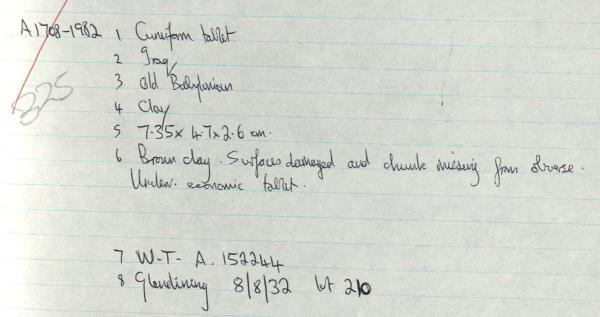 A1708-1982 1 Cuneiform tablet
2 Iraq
3 Old Babylonian
4 Clay
5 7.35 x 4.7 x 2.6 cm.
6 Brown clay. Surfaces damaged and chunk missing from obverse.
Unclear. economic tablet.
325
7 W-T- A. 152244
8 Glendining 8/8/32 lot 210